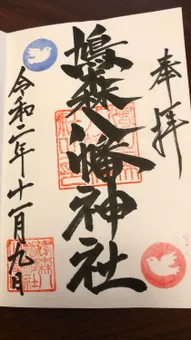 奉拝
鳩森八幡神社
令和二年十一月九日